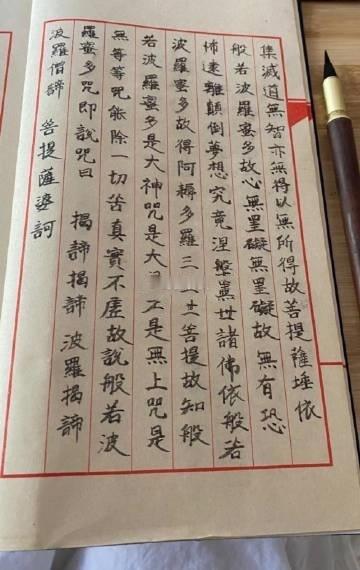 集滅道無智亦無得以無所得故菩提薩埵依
般若波羅蜜多故心無罣礙無罣礙故無有恐
怖遠離顛倒夢想究竟涅槃世諸佛依般若
波羅蜜多故得阿耨多羅三菩提故知般
若波羅蜜多是大神咒是大是無上咒是
無等等咒能除一切苦真實不虛故說般若波
羅蜜多咒即說咒曰 揭諦揭諦 波羅揭諦
波羅僧諦 菩提薩婆訶